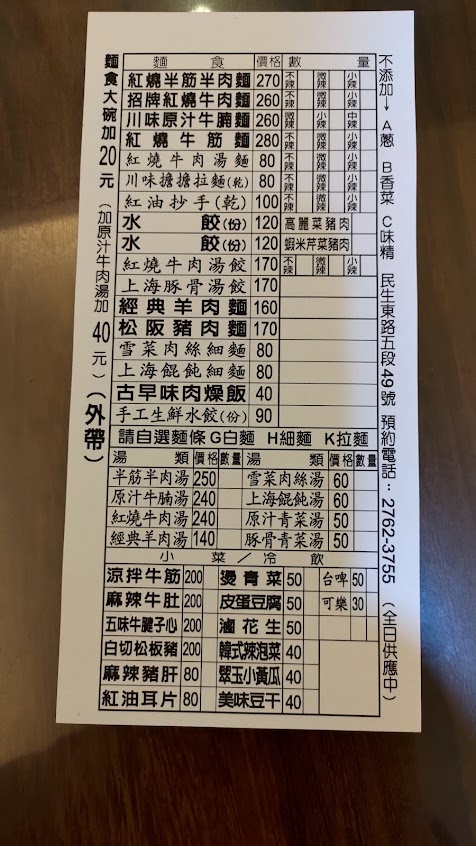 麵食 價格 數量
紅燒半筋半肉麵 270 不辣 微辣 小辣
招牌紅燒牛肉麵 260 不辣 微辣 小辣
川味原汁牛腩麵 260 微辣 小辣 中辣
紅燒牛筋麵 280 不辣 微辣 小辣
紅燒牛肉湯麵 80 不辣 微辣 小辣
川味擔擔拉麵(乾) 80 不辣 微辣 小辣
紅油抄手(乾) 100 不辣 微辣 小辣
水餃(份) 120 高麗菜豬肉
水餃(份) 120 蝦米芹菜豬肉
紅燒牛肉湯餃 170 不辣 微辣 小辣
上海豚骨湯餃 170
經典羊肉麵 160
松阪豬肉麵 170
雪菜肉絲細麵 80
上海餛飩細麵 80
古早味肉燥飯 40
手工生鮮水餃(份) 90
請自選麵條 G白麵 H細麵 K拉麵
湯類 價格 數量 湯類 價格 數量
半筋半肉湯 250 雪菜肉絲湯 60
原汁牛腩湯 240 上海餛飩湯 60
紅燒牛肉湯 240 原汁青菜湯 50
經典羊肉湯 140 豚骨青菜湯 50
小菜/冷飲
涼拌牛筋 200 燙青菜 50 台啤 50
麻辣牛肚 200 皮蛋豆腐 50 可樂 30
五味牛腱子心 200 滷花生 50
白切松板豬 200 韓式辣泡菜 40
麻辣豬肝 80 翠玉小黃瓜 40
紅油耳片 80 美味豆干 40
麵食大碗加20元(加原汁牛肉湯加40元)(外帶)
不添加→ A蔥 B香菜 C味精 民生東路五段49號 預約電話：2762-3755 (全日供應中)